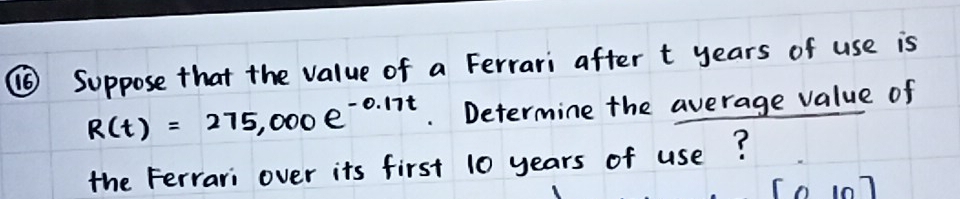 16 Suppose that the value of a Ferrari after t years of use is
R(t) = 275,000 e^-0.17t. Determine the average value of
the Ferrari over its first 10 years of use ?
[0 10]